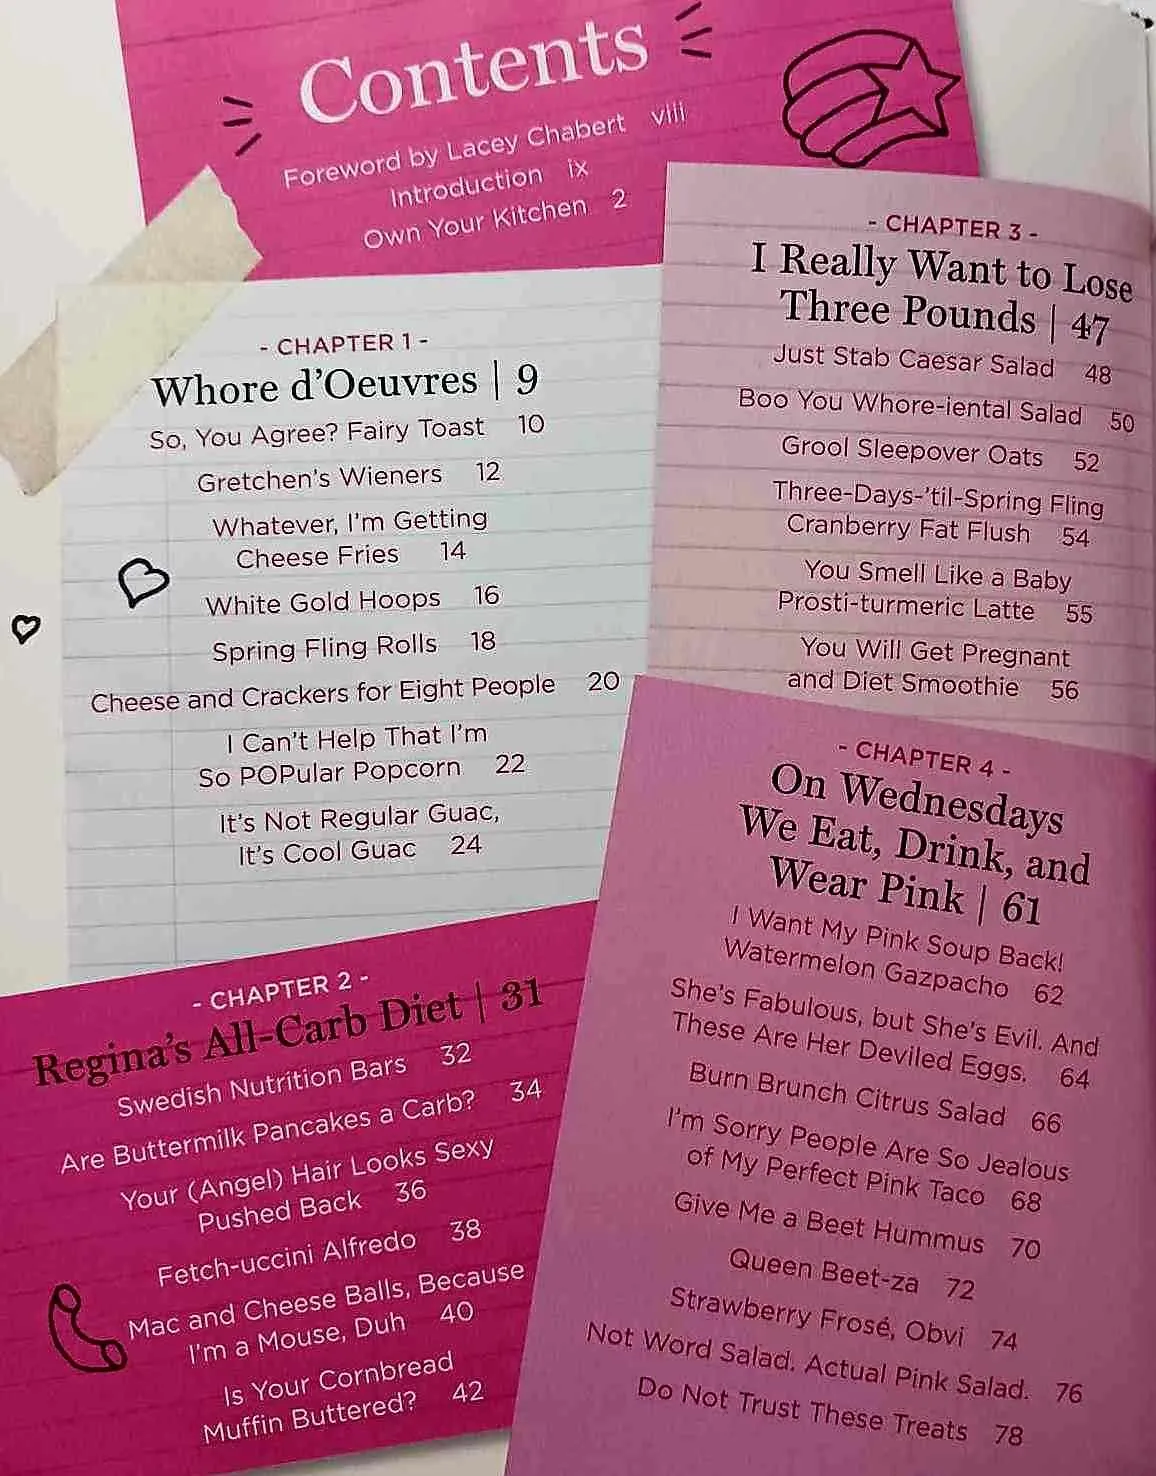 Contents
Foreword by Lacey Chabert viii
Introduction ix
Own Your Kitchen 2
- CHAPTER 1 -
Whore d'Oeuvres | 9
So, You Agree? Fairy Toast 10
Gretchen's Wieners 12
Whatever, I'm Getting
Cheese Fries 14
White Gold Hoops 16
Spring Fling Rolls 18
Cheese and Crackers for Eight People 20
I Can't Help That I'm
So POPular Popcorn 22
It's Not Regular Guac,
It's Cool Guac 24
- CHAPTER 2 -
Regina's All-Carb Diet | 31
Swedish Nutrition Bars 32
Are Buttermilk Pancakes a Carb? 34
Your (Angel) Hair Looks Sexy
Pushed Back 36
Fetch-uccini Alfredo 38
Mac and Cheese Balls, Because
I'm a Mouse, Duh 40
Is Your Cornbread
Muffin Buttered? 42
- CHAPTER 3 -
I Really Want to Lose
Three Pounds | 47
Just Stab Caesar Salad 48
Boo You Whore-iental Salad 50
Grool Sleepover Oats 52
Three-Days-'til-Spring Fling
Cranberry Fat Flush 54
You Smell Like a Baby
Prosti-turmeric Latte 55
You Will Get Pregnant
and Diet Smoothie 56
- CHAPTER 4 -
On Wednesdays
We Eat, Drink, and
Wear Pink | 61
I Want My Pink Soup Back!
Watermelon Gazpacho 62
She's Fabulous, but She's Evil. And
These Are Her Deviled Eggs. 64
Burn Brunch Citrus Salad 66
I'm Sorry People Are So Jealous
of My Perfect Pink Taco 68
Give Me a Beet Hummus 70
Queen Beet-za 72
Strawberry Frosé, Obvi 74
Not Word Salad. Actual Pink Salad. 76
Do Not Trust These Treats 78